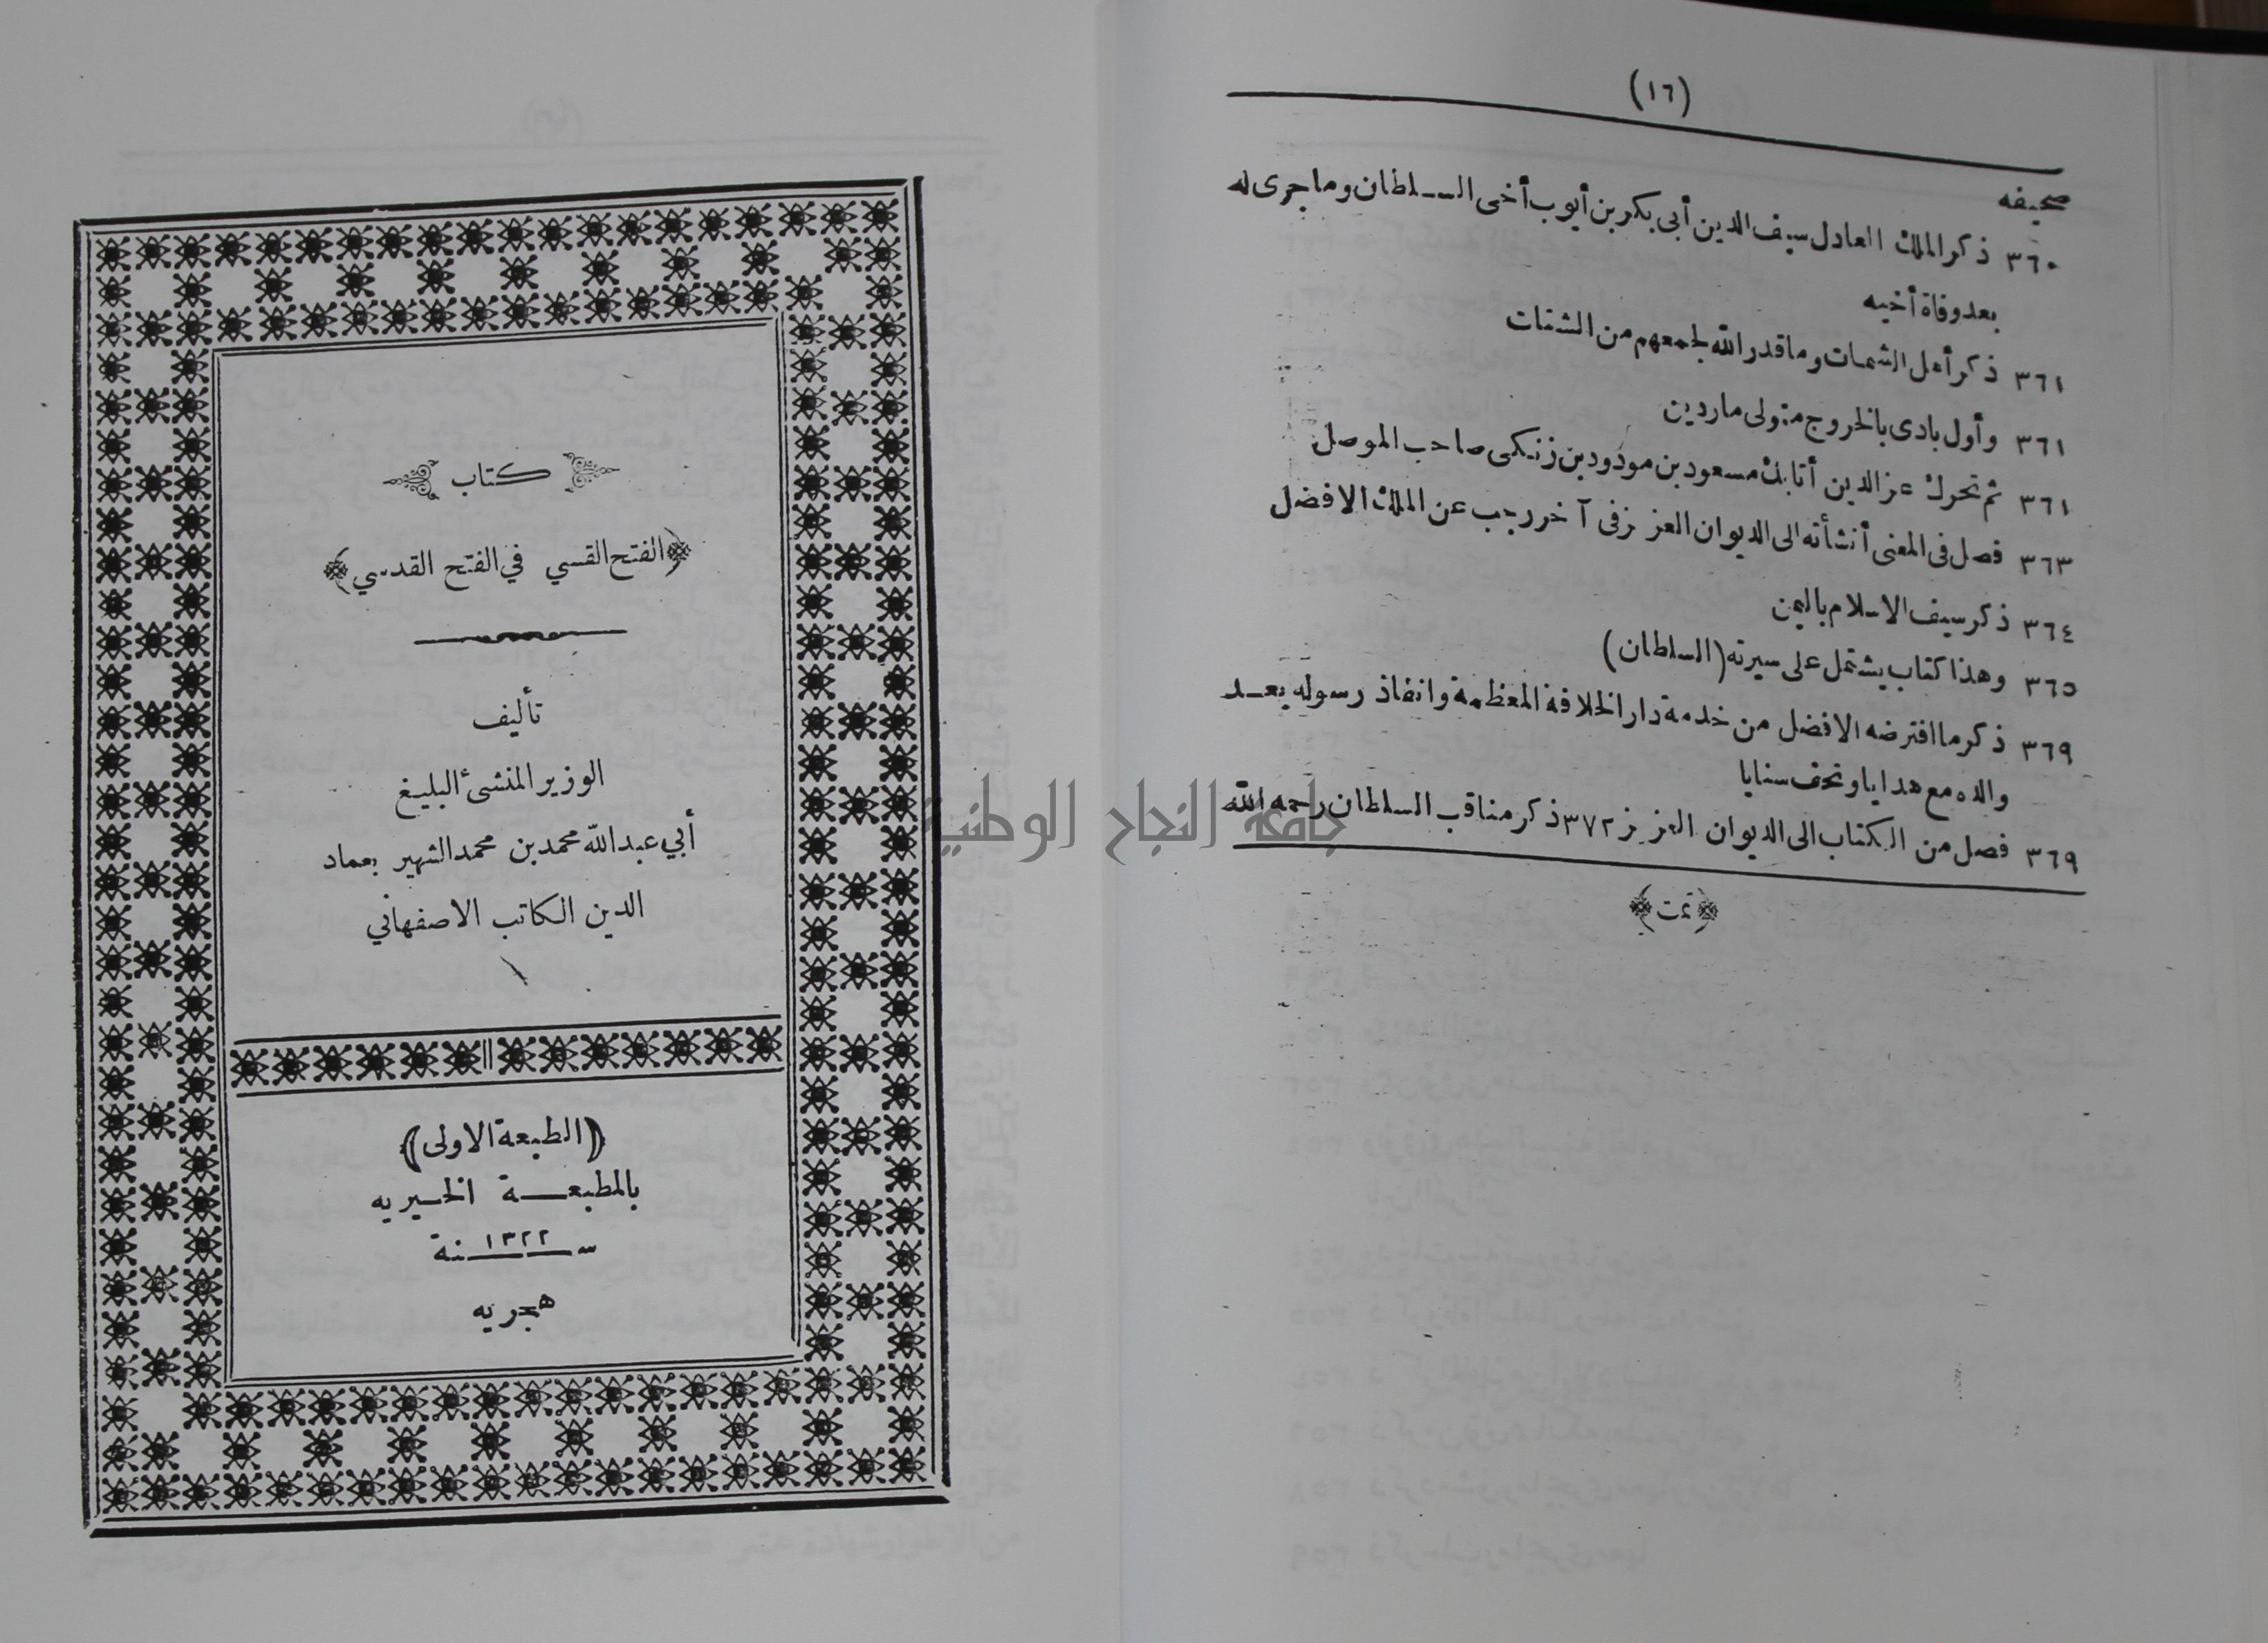 (١٦)
صحيفه
٣٦٠ ذكر الملك العادل سيف الدين أبى بكر بن أيوب أخى السلطان وما جرى له
بعد وفاة أخيه
٣٦١ ذكر أهل الشمات وما قدر الله لجمعهم من الشتات
٣٦١ وأول بادى بالخروج متولى ماردين
٣٦١ ثم تحرك عز الدين أتابك مسعود بن مودود بن زنكى صاحب الموصل
٣٦٣ فصل فى المعنى أنشأته الى الديوان العزيز فى آخر رجب عن الملك الافضل
٣٦٤ ذكر سيف الاسلام باليمن
٣٦٥ وهذا كتاب يشتمل على سيرته (السلطان)
٣٦٩ ذكر ما افترضه الافضل من خدمة دار الخلافة المعظمة وانفاذ رسوله بعد
والده مع هدايا وتحف سنايا
٣٦٩ فصل من الكتاب الى الديوان العزيز ٣٧٢ ذكر مناقب السلطان رحمه الله
﴿تمت﴾
جامعة النجاح الوطنية
كتاب
﴿الفتح القسي في الفتح القدسي﴾
تأليف
الوزير المنشئ البليغ
أبي عبد الله محمد بن محمد الشهير بعماد
الدين الكاتب الاصفهاني
﴿الطبعة الاولى﴾
بالمطبعة الخيريه
سنة ١٣٢٢
هجريه